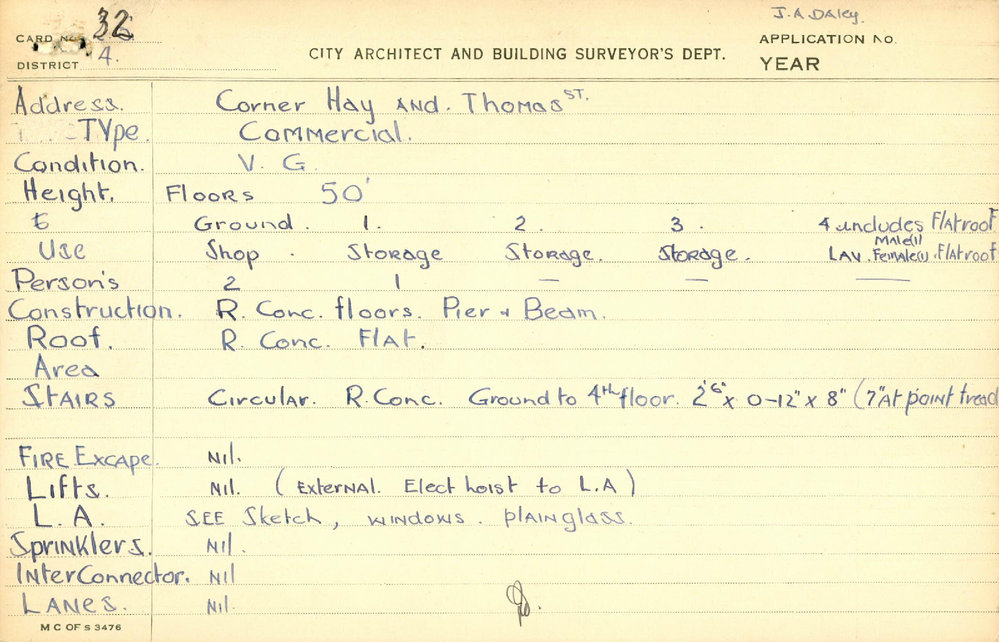 J.A Daley.
CARD No. 32
APPLICATION No.
DISTRICT 4.
CITY ARCHITECT AND BUILDING SURVEYOR'S DEPT.
YEAR
Address. Corner Hay AND. Thomas ST.
Type. Commercial.
Condition. V. G.
Height. Floors 50'
Ground. 1. 2. 3. 4 includes Flat roof
Use Shop. Storage Storage. Storage. LAV. Male(1) Female(1). Flat roof
Person's 2 1 — — —
Construction. R. Conc. floors. Pier + Beam.
Roof. R. Conc. Flat.
Area
Stairs Circular. R. Conc. Ground to 4th floor. 2'6" x 0-12" x 8" (7" At point tread
Fire Excape. Nil.
Lifts. Nil. (External. Elect hoist to L.A)
L.A. SEE Sketch, windows. plain glass.
Sprinklers. Nil.
InterConnector. Nil
Lanes. Nil.
M C OF S 3476